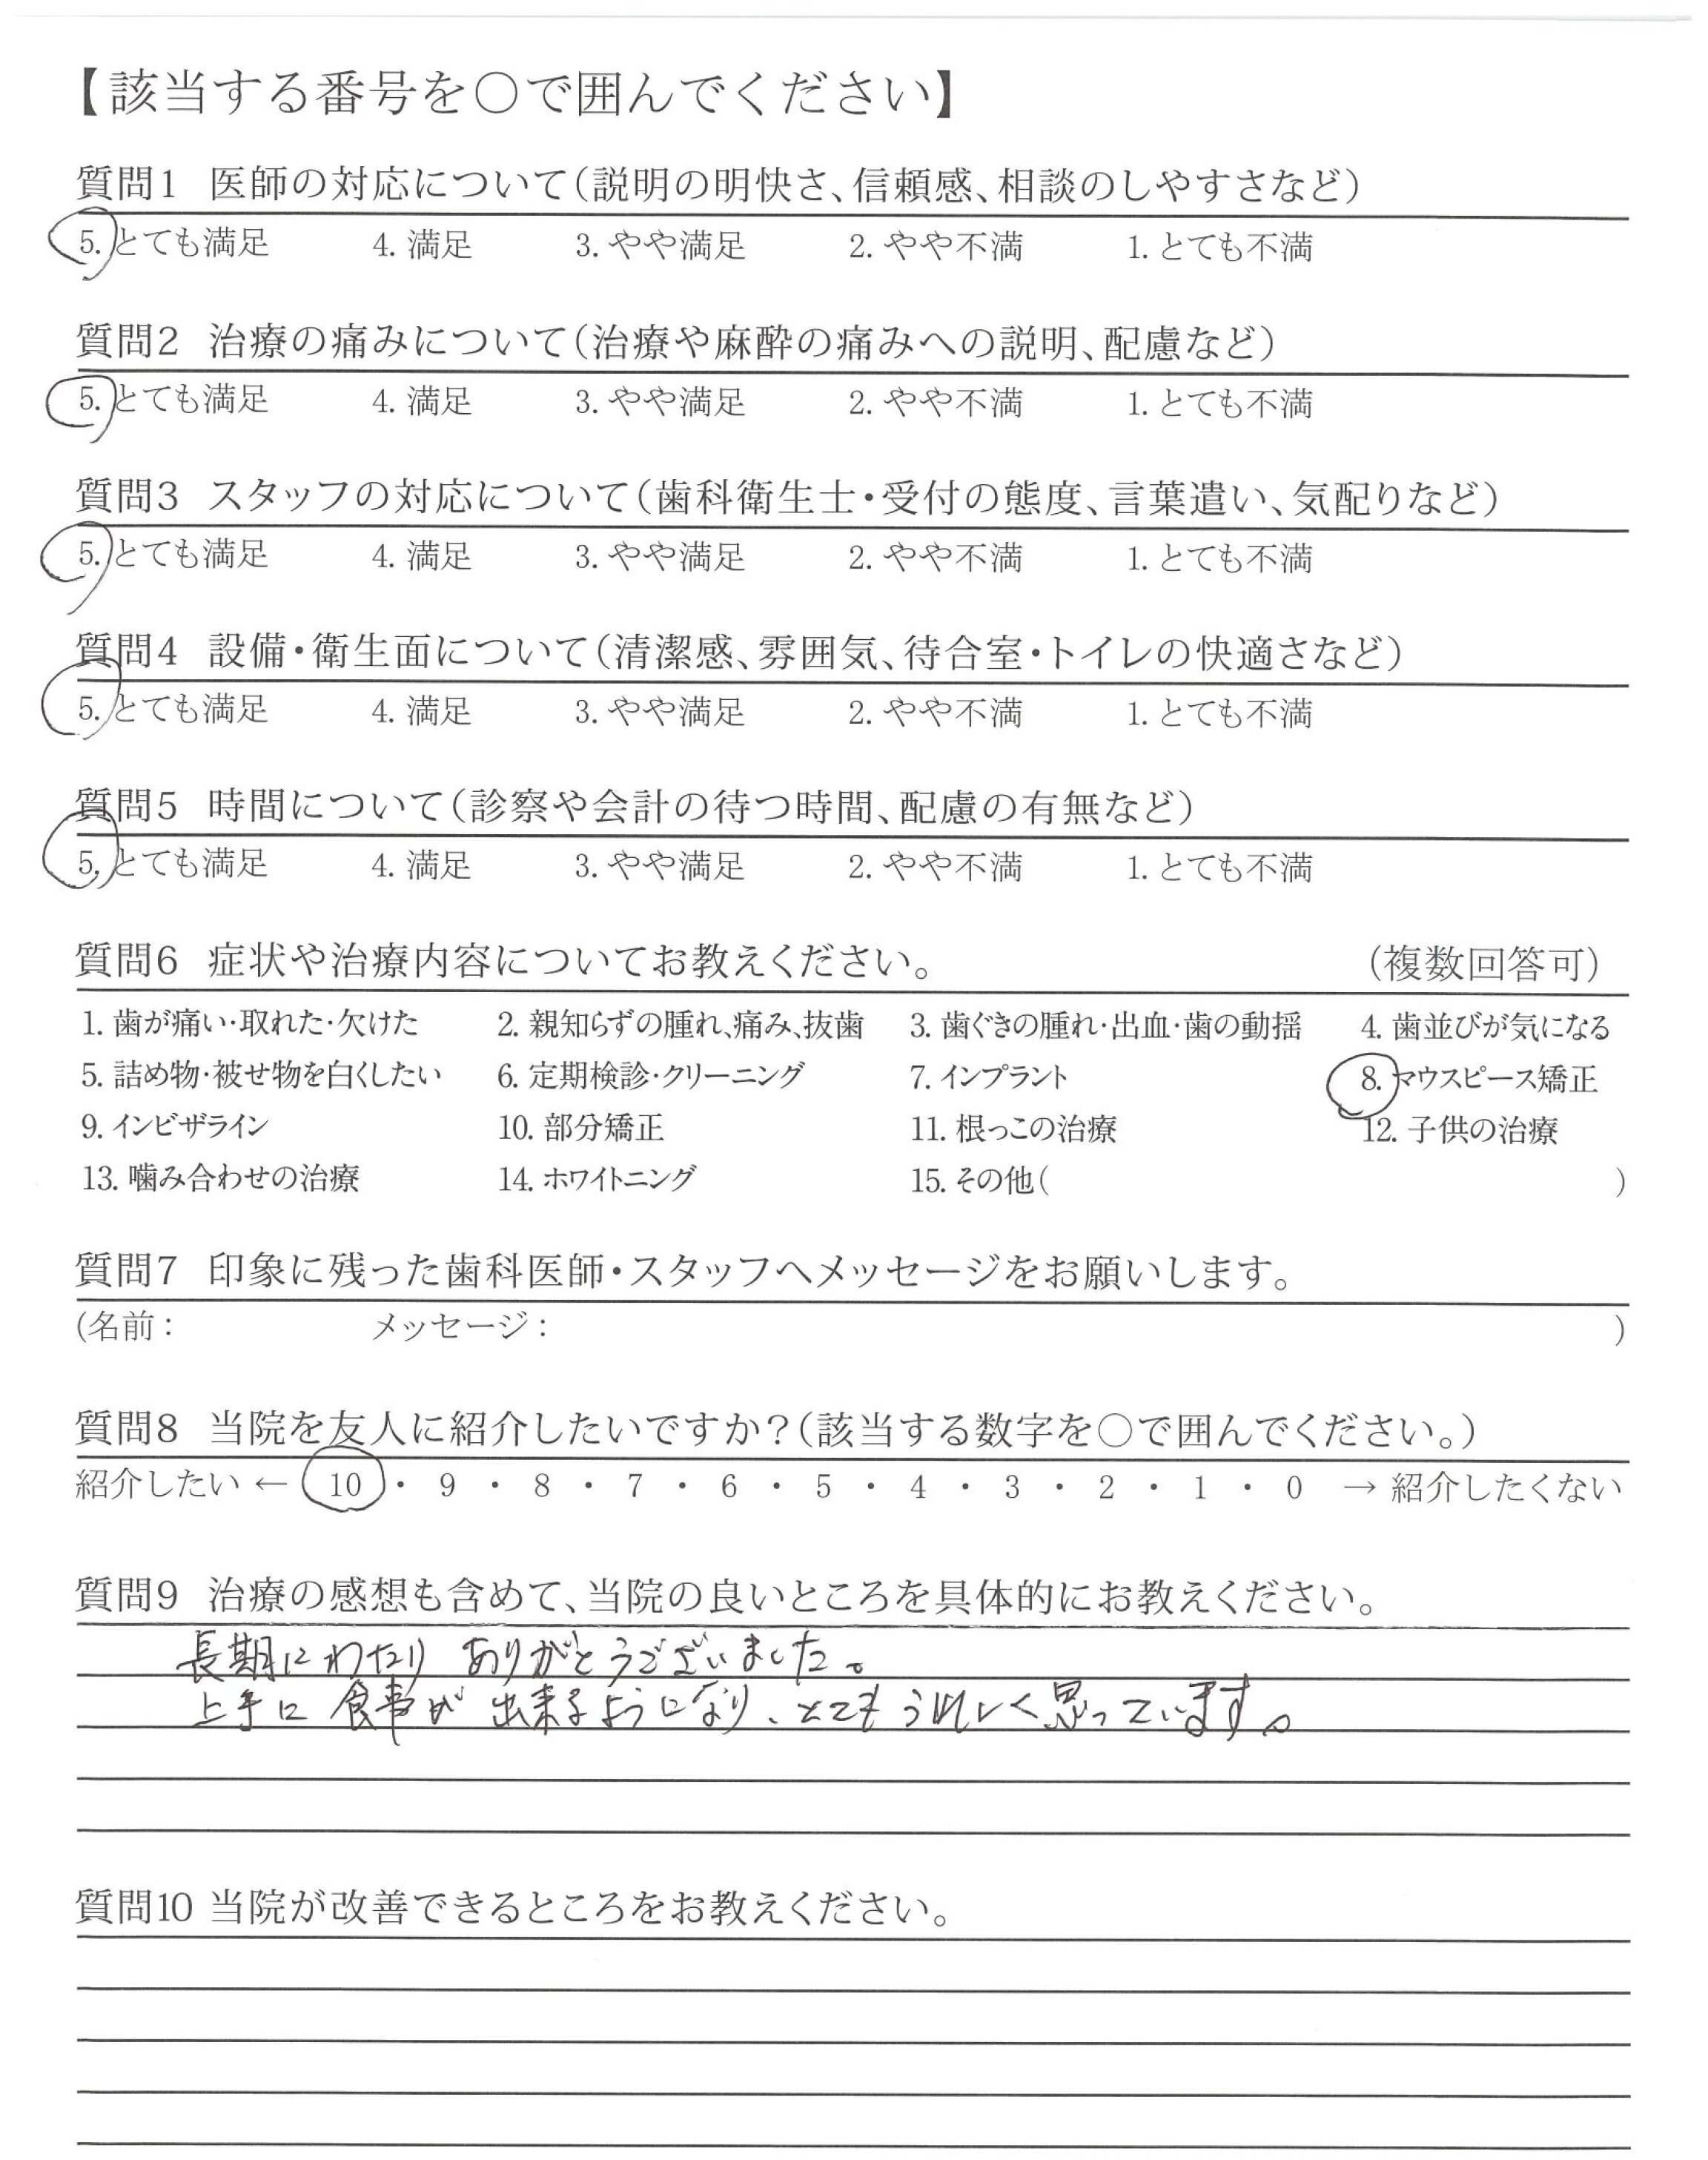 【該当する番号を○で囲んでください】
質問1 医師の対応について（説明の明快さ、信頼感、相談のしやすさなど）
5. とても満足 4. 満足 3. やや満足 2. やや不満 1. とても不満
質問2 治療の痛みについて（治療や麻酔の痛みへの説明、配慮など）
5. とても満足 4. 満足 3. やや満足 2. やや不満 1. とても不満
質問3 スタッフの対応について（歯科衛生士・受付の態度、言葉遣い、気配りなど）
5. とても満足 4. 満足 3. やや満足 2. やや不満 1. とても不満
質問4 設備・衛生面について（清潔感、雰囲気、待合室・トイレの快適さなど）
5. とても満足 4. 満足 3. やや満足 2. やや不満 1. とても不満
質問5 時間について（診察や会計の待つ時間、配慮の有無など）
5. とても満足 4. 満足 3. やや満足 2. やや不満 1. とても不満
質問6 症状や治療内容についてお教えください。 （複数回答可）
1. 歯が痛い・取れた・欠けた 2. 親知らずの腫れ、痛み、抜歯 3. 歯ぐきの腫れ・出血・歯の動揺 4. 歯並びが気になる
5. 詰め物・被せ物を白くしたい 6. 定期検診・クリーニング 7. インプラント 8. マウスピース矯正
9. インビザライン 10. 部分矯正 11. 根っこの治療 12. 子供の治療
13. 噛み合わせの治療 14. ホワイトニング 15. その他（ ）
質問7 印象に残った歯科医師・スタッフへメッセージをお願いします。
（名前： メッセージ： ）
質問8 当院を友人に紹介したいですか？（該当する数字を○で囲んでください。）
紹介したい ← 10 ・ 9 ・ 8 ・ 7 ・ 6 ・ 5 ・ 4 ・ 3 ・ 2 ・ 1 ・ 0 → 紹介したくない
質問9 治療の感想も含めて、当院の良いところを具体的にお教えください。
長期にわたり ありがとうございました。
上手に 食事が 出来るようになり、とてもうれしく思っています。
質問10 当院が改善できるところをお教えください。